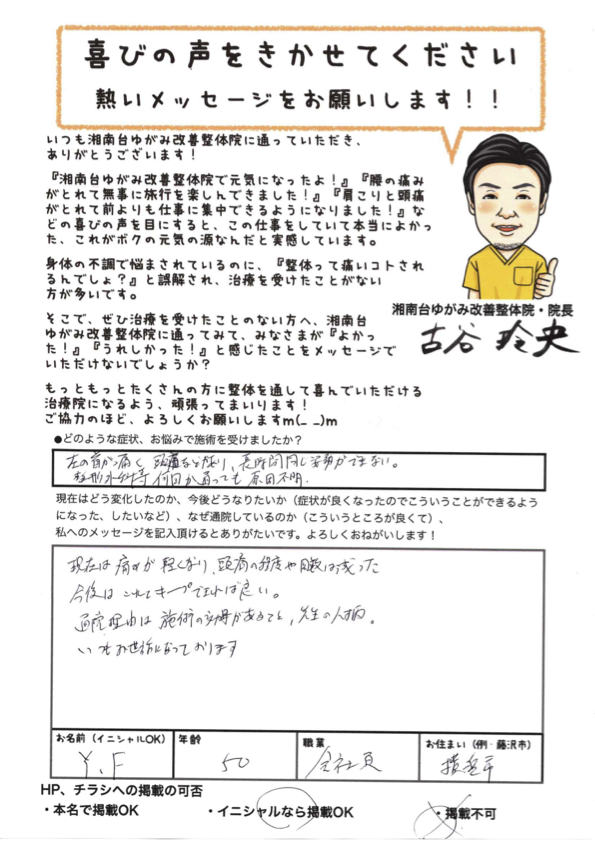 喜びの声をきかせてください
熱いメッセージをお願いします！！
いつも湘南台ゆがみ改善整体院に通っていただき、
ありがとうございます！
『湘南台ゆがみ改善整体院で元気になったよ！』『腰の痛み
がとれて無事に旅行を楽しんできました！』『肩こりと頭痛
がとれて前よりも仕事に集中できるようになりました！』な
どの喜びの声を目にすると、この仕事をしていて本当によかっ
た、これがボクの元気の源なんだと実感しています。
身体の不調で悩まされているのに、『整体って痛いコトされ
るんでしょ？』と誤解され、治療を受けたことがない
方が多いです。
そこで、ぜひ治療を受けたことのない方へ、湘南台
ゆがみ改善整体院に通ってみて、みなさまが『よかっ
た！』『うれしかった！』と感じたことをメッセージで
いただけないでしょうか？
もっともっとたくさんの方に整体を通して喜んでいただける
治療院になるよう、頑張ってまいります！
ご協力のほど、よろしくお願いしますm(_ _)m
湘南台ゆがみ改善整体院・院長
古谷 玲央
●どのような症状、お悩みで施術を受けましたか？
左の首が痛く、頭痛など有り、長時間同じ姿勢ができない。
整形外科等 何回か通っても 原因不明。
現在はどう変化したのか、今後どうなりたいか（症状が良くなったのでこういうことができるよう
になった、したいなど）、なぜ通院しているのか（こういうところが良くて）、
私へのメッセージを記入頂けるとありがたいです。よろしくおねがいします！
現在は 痛みが 軽くなり、頭痛の程度や回数は減った
今後は これでキープできれば良い。
通院理由は 施術の効果があること、先生の人柄。
いつもお世話になっております
お名前（イニシャルOK）
Y.F
年齢
50
職業
会社員
お住まい（例・藤沢市）
HP、チラシへの掲載の可否
・本名で掲載OK
・イニシャルなら掲載OK
・掲載不可